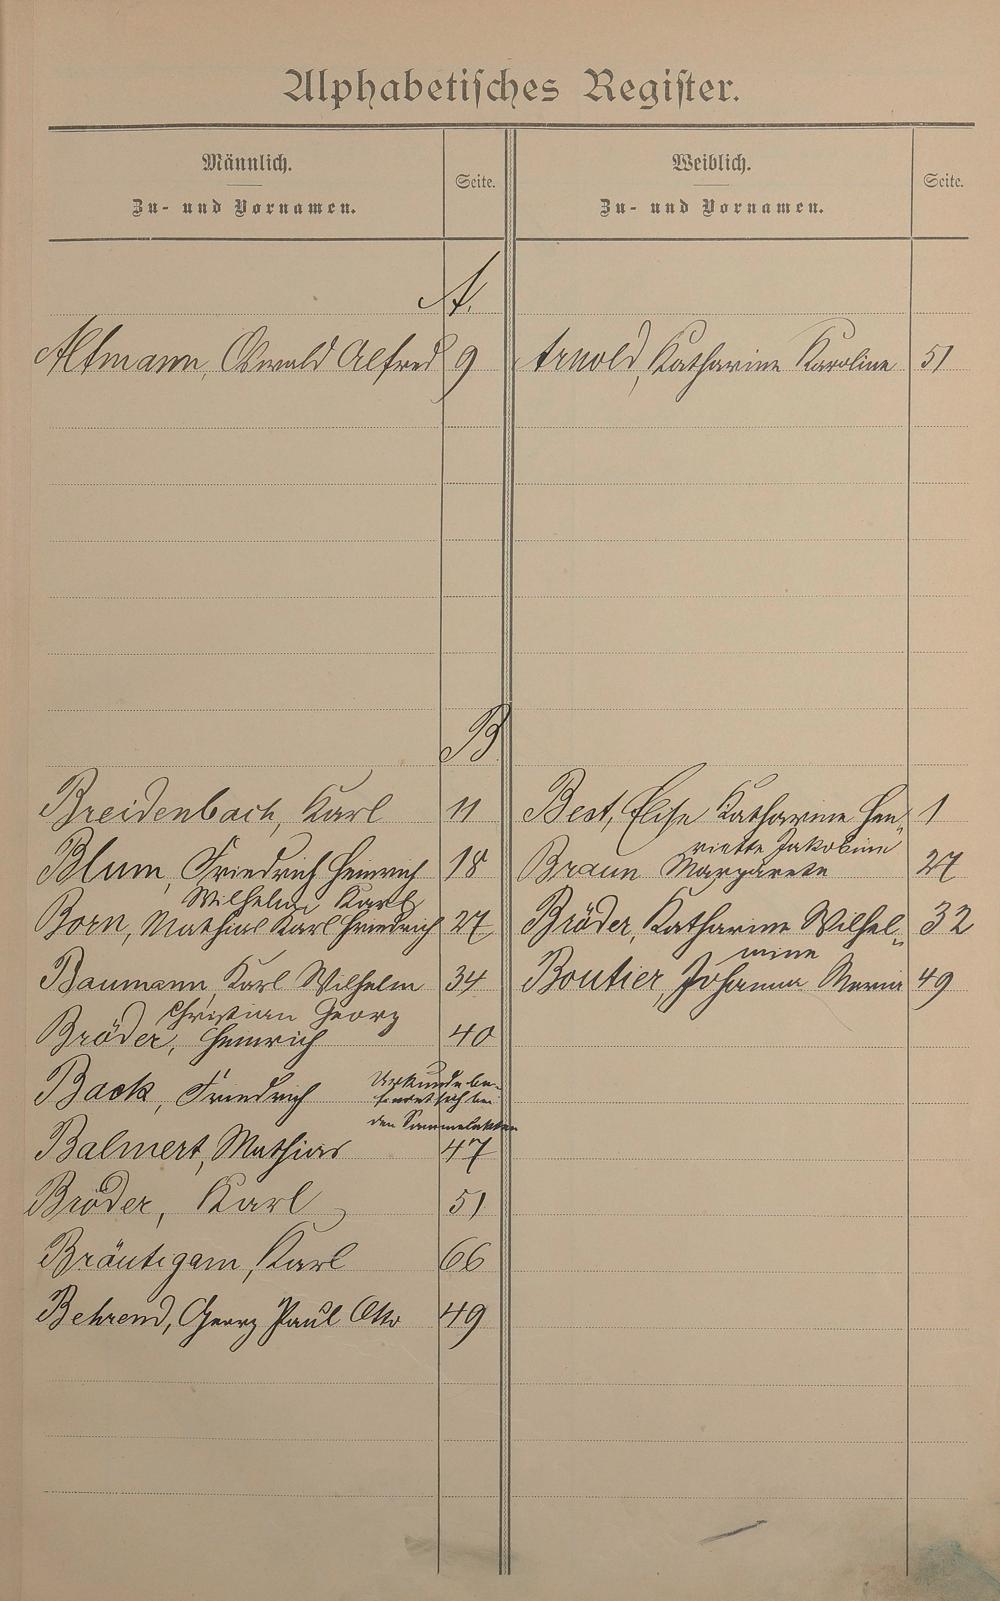 Alphabetisches Register.
Männlich.
Zu- und Vornamen.
Seite.
Weiblich.
Zu- und Vornamen.
Seite.
A.
Altmann, Oswald Alfred 9
Arnold, Katharine Karoline 51
B
Breidenbach, Karl 11
Best, Elise Katharine Hen- 1
riette Jakobine
Blum, Friedrich Heinrich 18
Wilhelm Karl
Braun Margarete 27
Born, Mathias Karl Friedrich 27
Bröder, Katharine Wilhel- 32
mine
Baumann, Karl Wilhelm 34
Christian Georg
Boutier, Johanna Maria 49
Bröder, Heinrich 40
Back, Friedrich
Urkunde be-
findet sich bei
den Sammelakten
Balmert, Mathias 47
Bröder, Karl 51
Bräutigam, Karl 66
Behrend, Georg Paul Otto 49